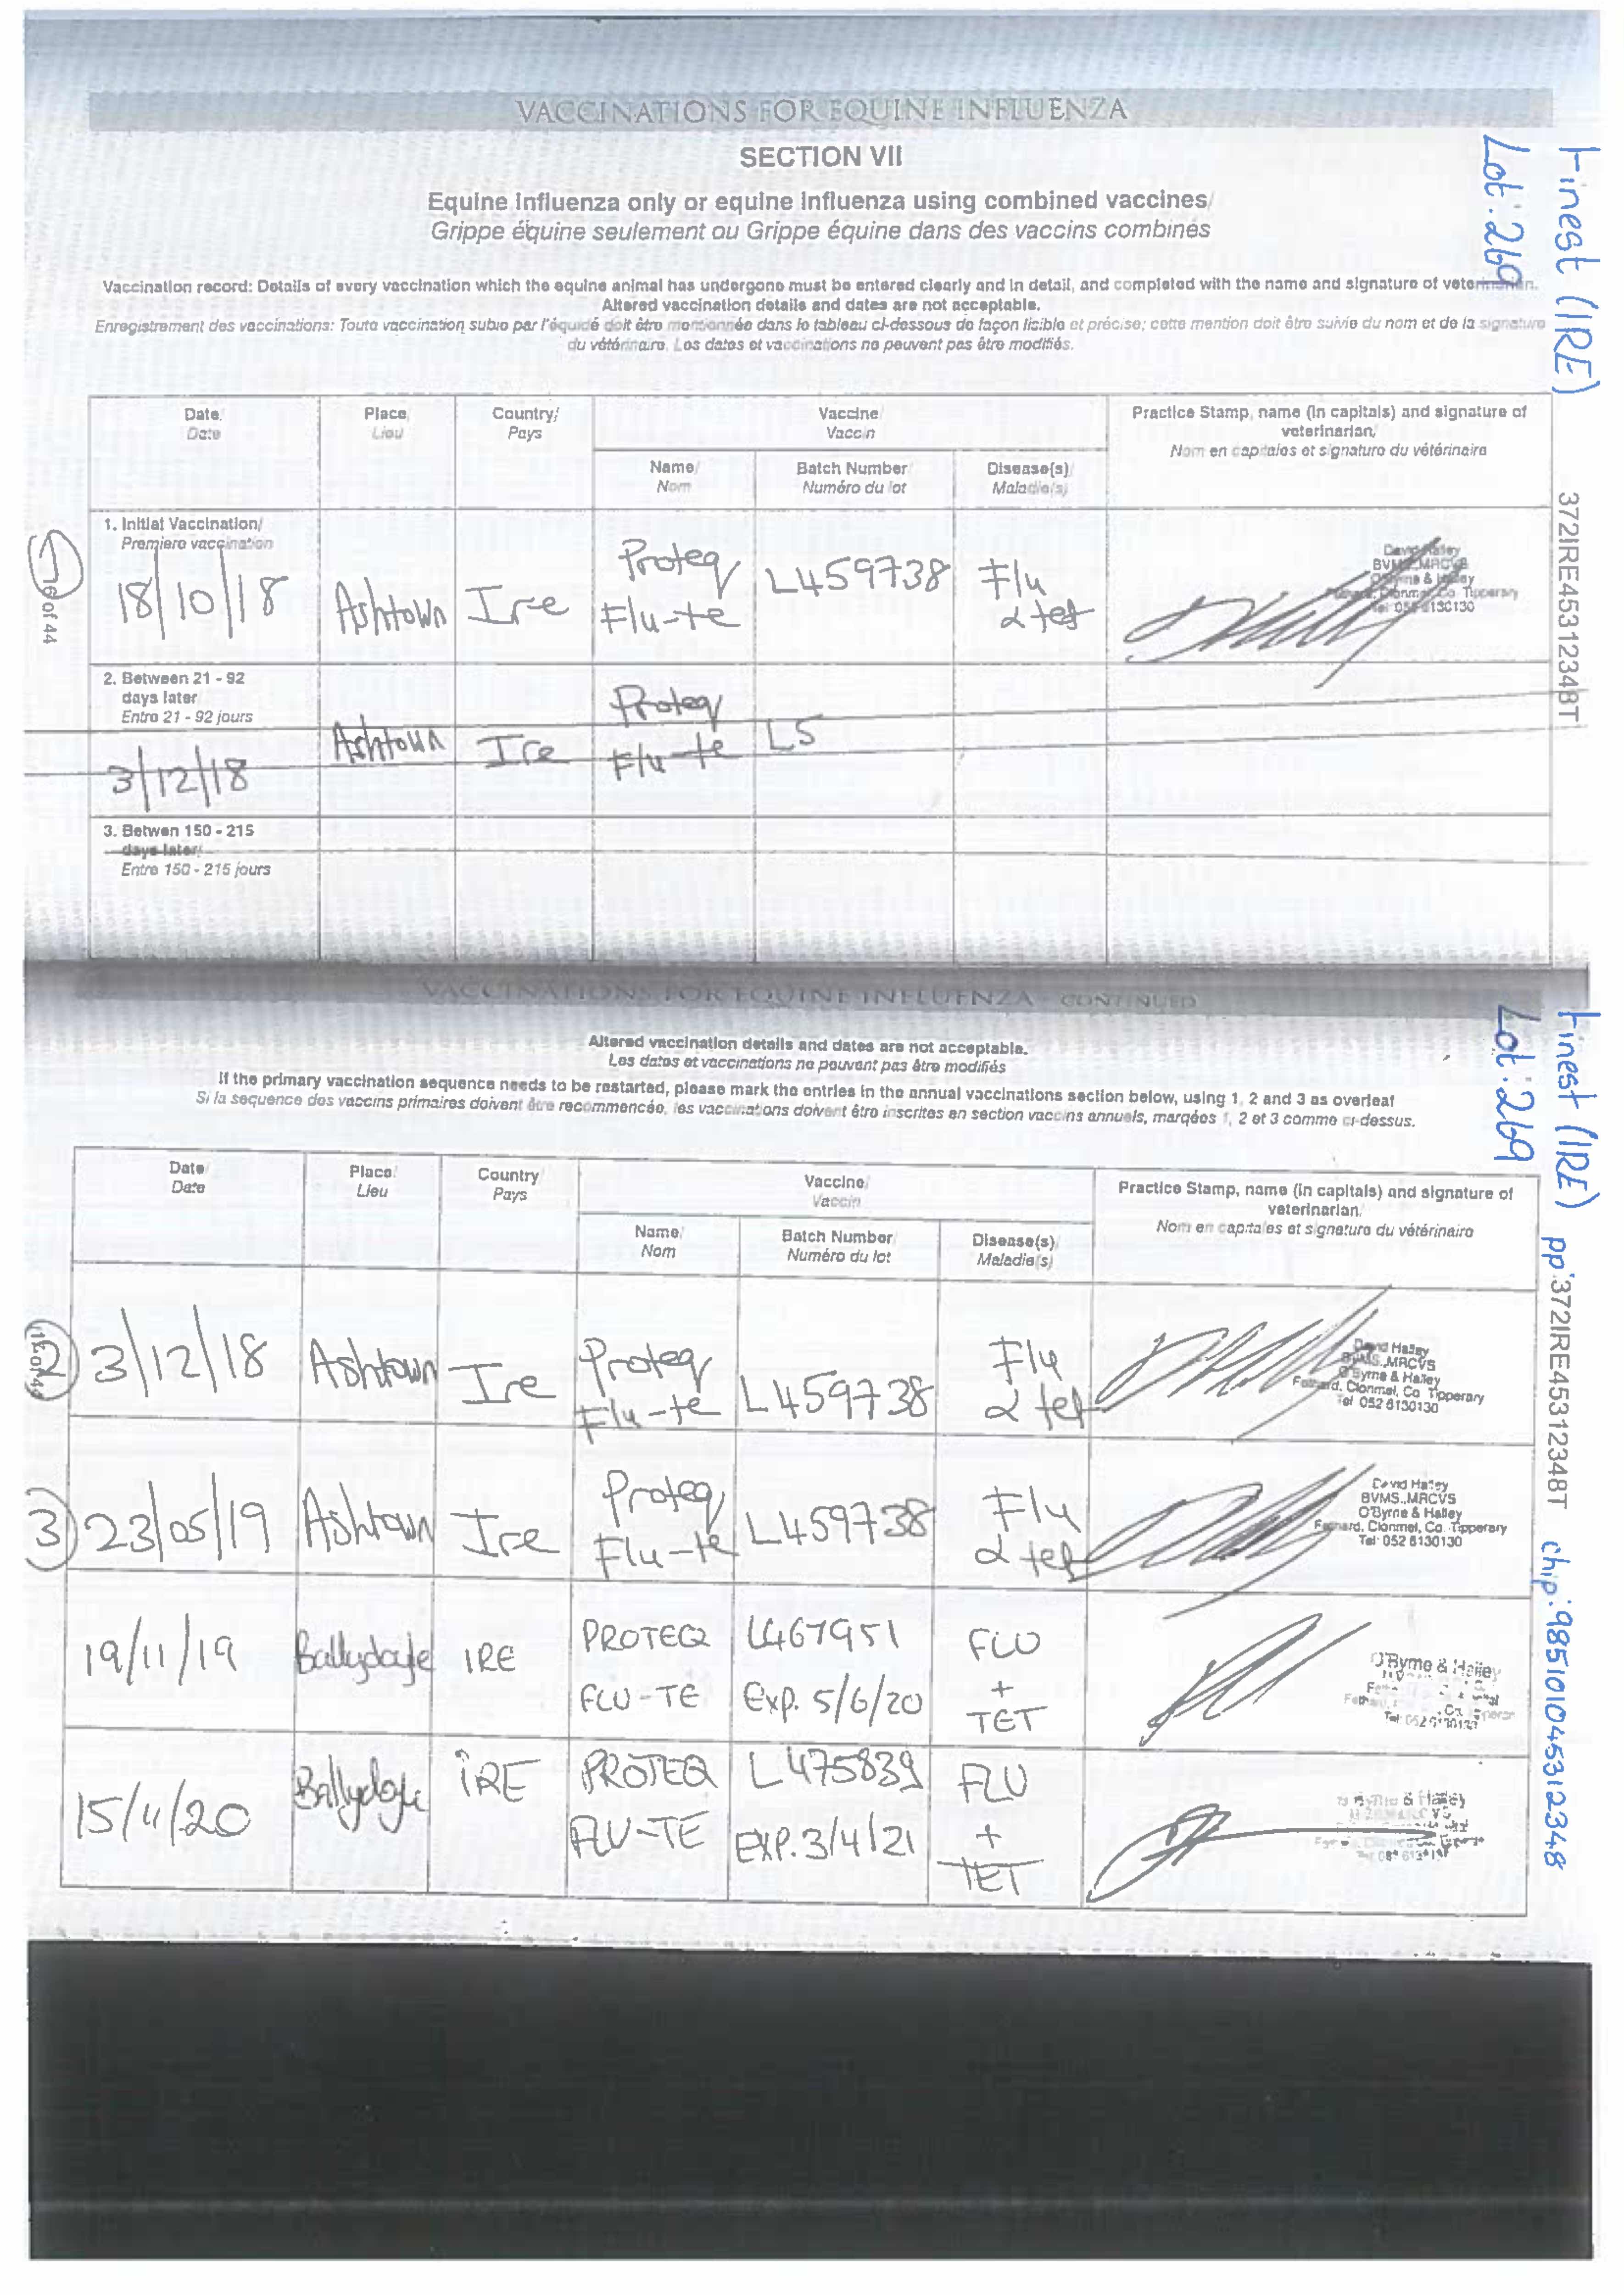 VACCINATIONS FOR EQUINE INFLUENZA
SECTION VII
Equine Influenza only or equine Influenza using combined vaccines/
Grippe équine seulement ou Grippe équine dans des vaccins combinés
Vaccination record: Details of every vaccination which the equine animal has undergone must be entered clearly and in detail, and completed with the name and signature of veterinarian.
Altered vaccination details and dates are not acceptable.
Enregistrement des vaccinations: Toute vaccination subie par l'équidé doit être mentionnée dans le tableau ci-dessous de façon lisible et précise; cette mention doit être suivie du nom et de la signature
du vétérinaire. Les dates et vaccinations ne peuvent pas être modifiés.
Lot: 269
Finest (IRE)
372IRE45312348T
Date/ Place/ Country/ Vaccine/ Practice Stamp, name (in capitals) and signature of
Date Lieu Pays Vaccin veterinarian/
Nom en capitales et signature du vétérinaire
Name/ Batch Number/ Disease(s)/
Nom Numéro du lot Maladie(s)
1. Initial Vaccination/
Premiere vaccination
18/10/18 Ashtown Ire Proteq Flu-te L459738 Flu & tet
David Halley
BVMS., MRCVS
O'Byrne & Halley
Fethard, Clonmel, Co. Tipperary
Tel: 052 6130130
1
16 of 44
2. Between 21 - 92
days later
Entre 21 - 92 jours
3/12/18 Ashtown Ire Proteq Flu-te L5
3. Betwen 150 - 215
days later/
Entre 150 - 215 jours
VACCINATIONS FOR EQUINE INFLUENZA CONTINUED
Altered vaccination details and dates are not acceptable.
Les dates et vaccinations ne peuvent pas être modifiés
If the primary vaccination sequence needs to be restarted, please mark the entries in the annual vaccinations section below, using 1, 2 and 3 as overleaf
Si la sequence des vaccins primaires doivent être recommencée, les vaccinations doivent être inscrites en section vaccins annuels, marqées 1, 2 et 3 comme ci-dessus.
Lot: 269
Finest (IRE) pp: 372IRE45312348T chip: 985101045312348
Date/ Place/ Country/ Vaccine/ Practice Stamp, name (in capitals) and signature of
Date Lieu Pays Vaccin veterinarian/
Nom en capitales et signature du vétérinaire
Name/ Batch Number/ Disease(s)/
Nom Numéro du lot Maladie(s)
2 3/12/18 Ashtown Ire Proteq Flu-te L459738 Flu & tet
David Halley
BVMS., MRCVS
O'Byrne & Halley
Fethard, Clonmel, Co. Tipperary
Tel 052 6130130
3 23/05/19 Ashtown Ire Proteq Flu-te L459738 Flu & tet
David Halley
BVMS., MRCVS
O'Byrne & Halley
Fethard, Clonmel, Co. Tipperary
Tel: 052 6130130
19/11/19 IRE PROTEQ FLU-TE L467951 Exp. 5/6/20 FLU + TET
O'Byrne & Halley
IRE PROTEQ FLU-TE L475839 EXP. 3/4/21 FLU + TET